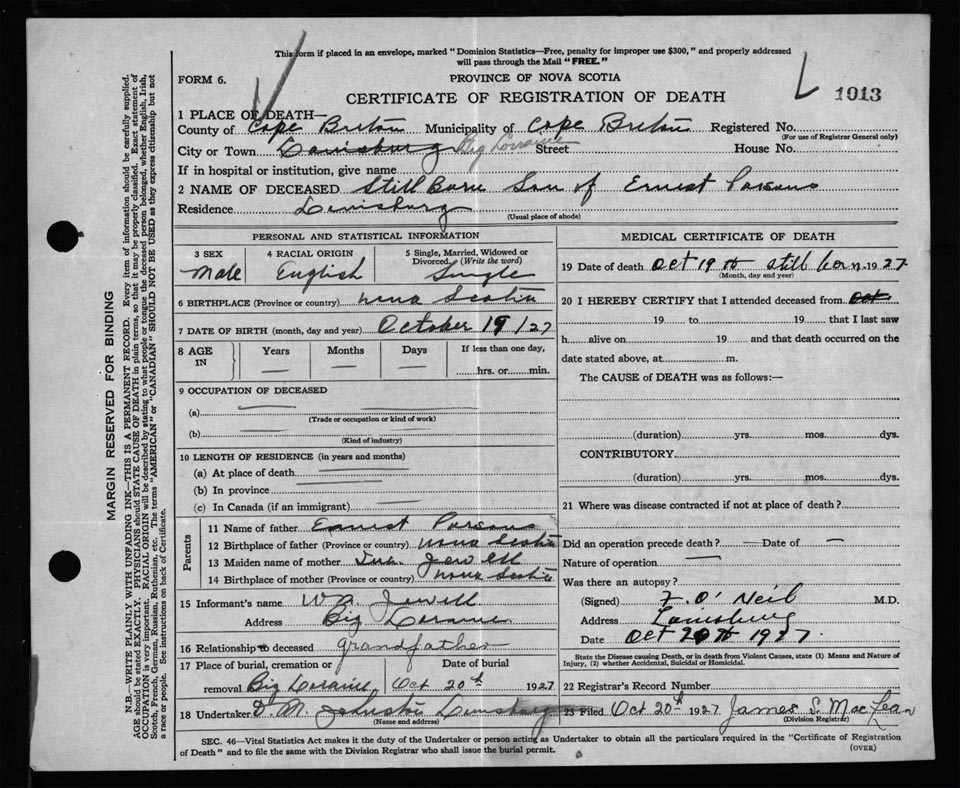 This form if placed in an envelope, marked "Dominion Statistics—Free, penalty for improper use $300," and properly addressed
will pass through the Mail "FREE."
FORM 6.
PROVINCE OF NOVA SCOTIA
CERTIFICATE OF REGISTRATION OF DEATH
1013
1 PLACE OF DEATH—
County of Cape Breton Municipality of Cape Breton Registered No.
(For use of Registrar General only)
City or Town Louisburg Big Lorraine Street House No.
If in hospital or institution, give name
2 NAME OF DECEASED Still Born Son of Ernest Parsons
Residence Louisburg
(Usual place of abode)
PERSONAL AND STATISTICAL INFORMATION
3 SEX 4 RACIAL ORIGIN 5 Single, Married, Widowed or Divorced. (Write the word)
Male English Single
6 BIRTHPLACE (Province or country) Nova Scotia
7 DATE OF BIRTH (month, day and year) October 19/27
8 AGE IN Years Months Days If less than one day,
— — — hrs. or min.
9 OCCUPATION OF DECEASED
(a)
(Trade or occupation or kind of work)
(b)
(Kind of industry)
10 LENGTH OF RESIDENCE (in years and months)
(a) At place of death
(b) In province
(c) In Canada (if an immigrant)
Parents
11 Name of father Earnest Parsons
12 Birthplace of father (Province or country) Nova Scotia
13 Maiden name of mother Jewell
14 Birthplace of mother (Province or country) Nova Scotia
15 Informant's name W A Jewell
Address Big Loraine
16 Relationship to deceased grandfather
17 Place of burial, cremation or removal Big Lorraine Date of burial Oct 20th 1927
18 Undertaker D. M. Johnston Louisburg
(Name and address)
MEDICAL CERTIFICATE OF DEATH
19 Date of death Oct 19th still born 1927
(Month, day and year)
20 I HEREBY CERTIFY that I attended deceased from Oct
19 to 19 that I last saw
h alive on 19 and that death occurred on the
date stated above, at m.
The CAUSE of DEATH was as follows:—
(duration) yrs. mos. dys.
CONTRIBUTORY
(duration) yrs. mos. dys.
21 Where was disease contracted if not at place of death?
Did an operation precede death? — Date of —
Nature of operation —
Was there an autopsy?
(Signed) F. O'Neil M.D.
Address Louisburg
Date Oct 20th 1927.
State the Disease causing Death, or in death from Violent Causes, state (1) Means and Nature of
Injury, (2) whether Accidental, Suicidal or Homicidal.
22 Registrar's Record Number
23 Filed Oct 20th 1927 James S. MacLean
(Division Registrar)
SEC. 46—Vital Statistics Act makes it the duty of the Undertaker or person acting as Undertaker to obtain all the particulars required in the "Certificate of Registration
of Death" and to file the same with the Division Registrar who shall issue the burial permit.
(OVER)
MARGIN RESERVED FOR BINDING
N.B.—WRITE PLAINLY WITH UNFADING INK—THIS IS A PERMANENT RECORD. Every item of information should be carefully supplied.
AGE should be stated EXACTLY. PHYSICIANS should STATE CAUSE OF DEATH in plain terms, so that it may be properly classified. Exact statement of
OCCUPATION is very important. RACIAL ORIGIN will be described by stating to what people or tongue the deceased person belonged, whether English, Irish,
Scotch, French, German, Russian, Ruthenian, etc. The terms "AMERICAN" or "CANADIAN" SHOULD NOT BE USED as they express citizenship but not
a race or people. See instructions on back of Certificate.